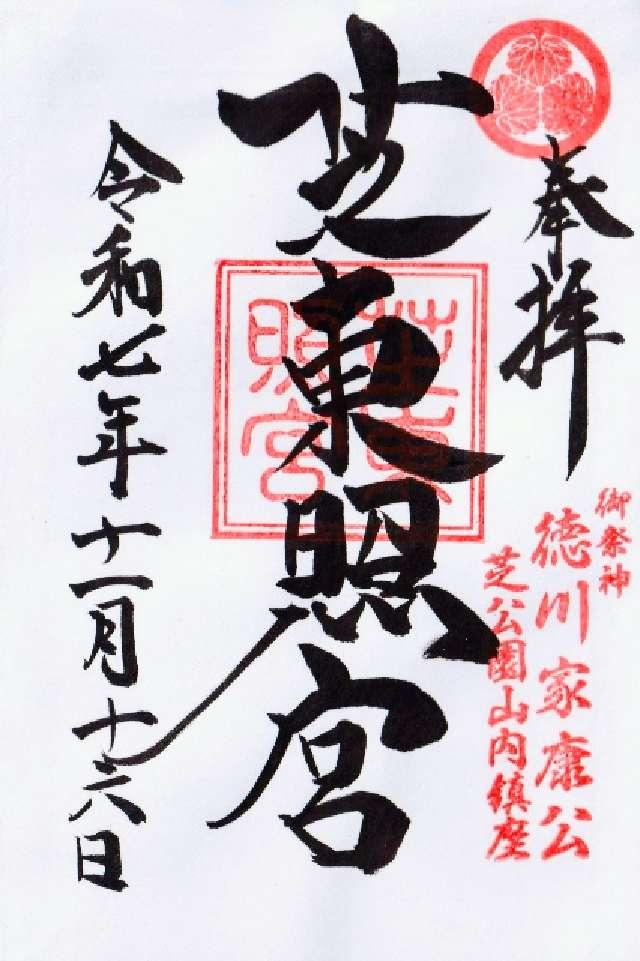 奉拝
御祭神
徳川家康公
芝公園山内鎮座
芝東照宮
芝東
照宮
令和七年十一月十六日